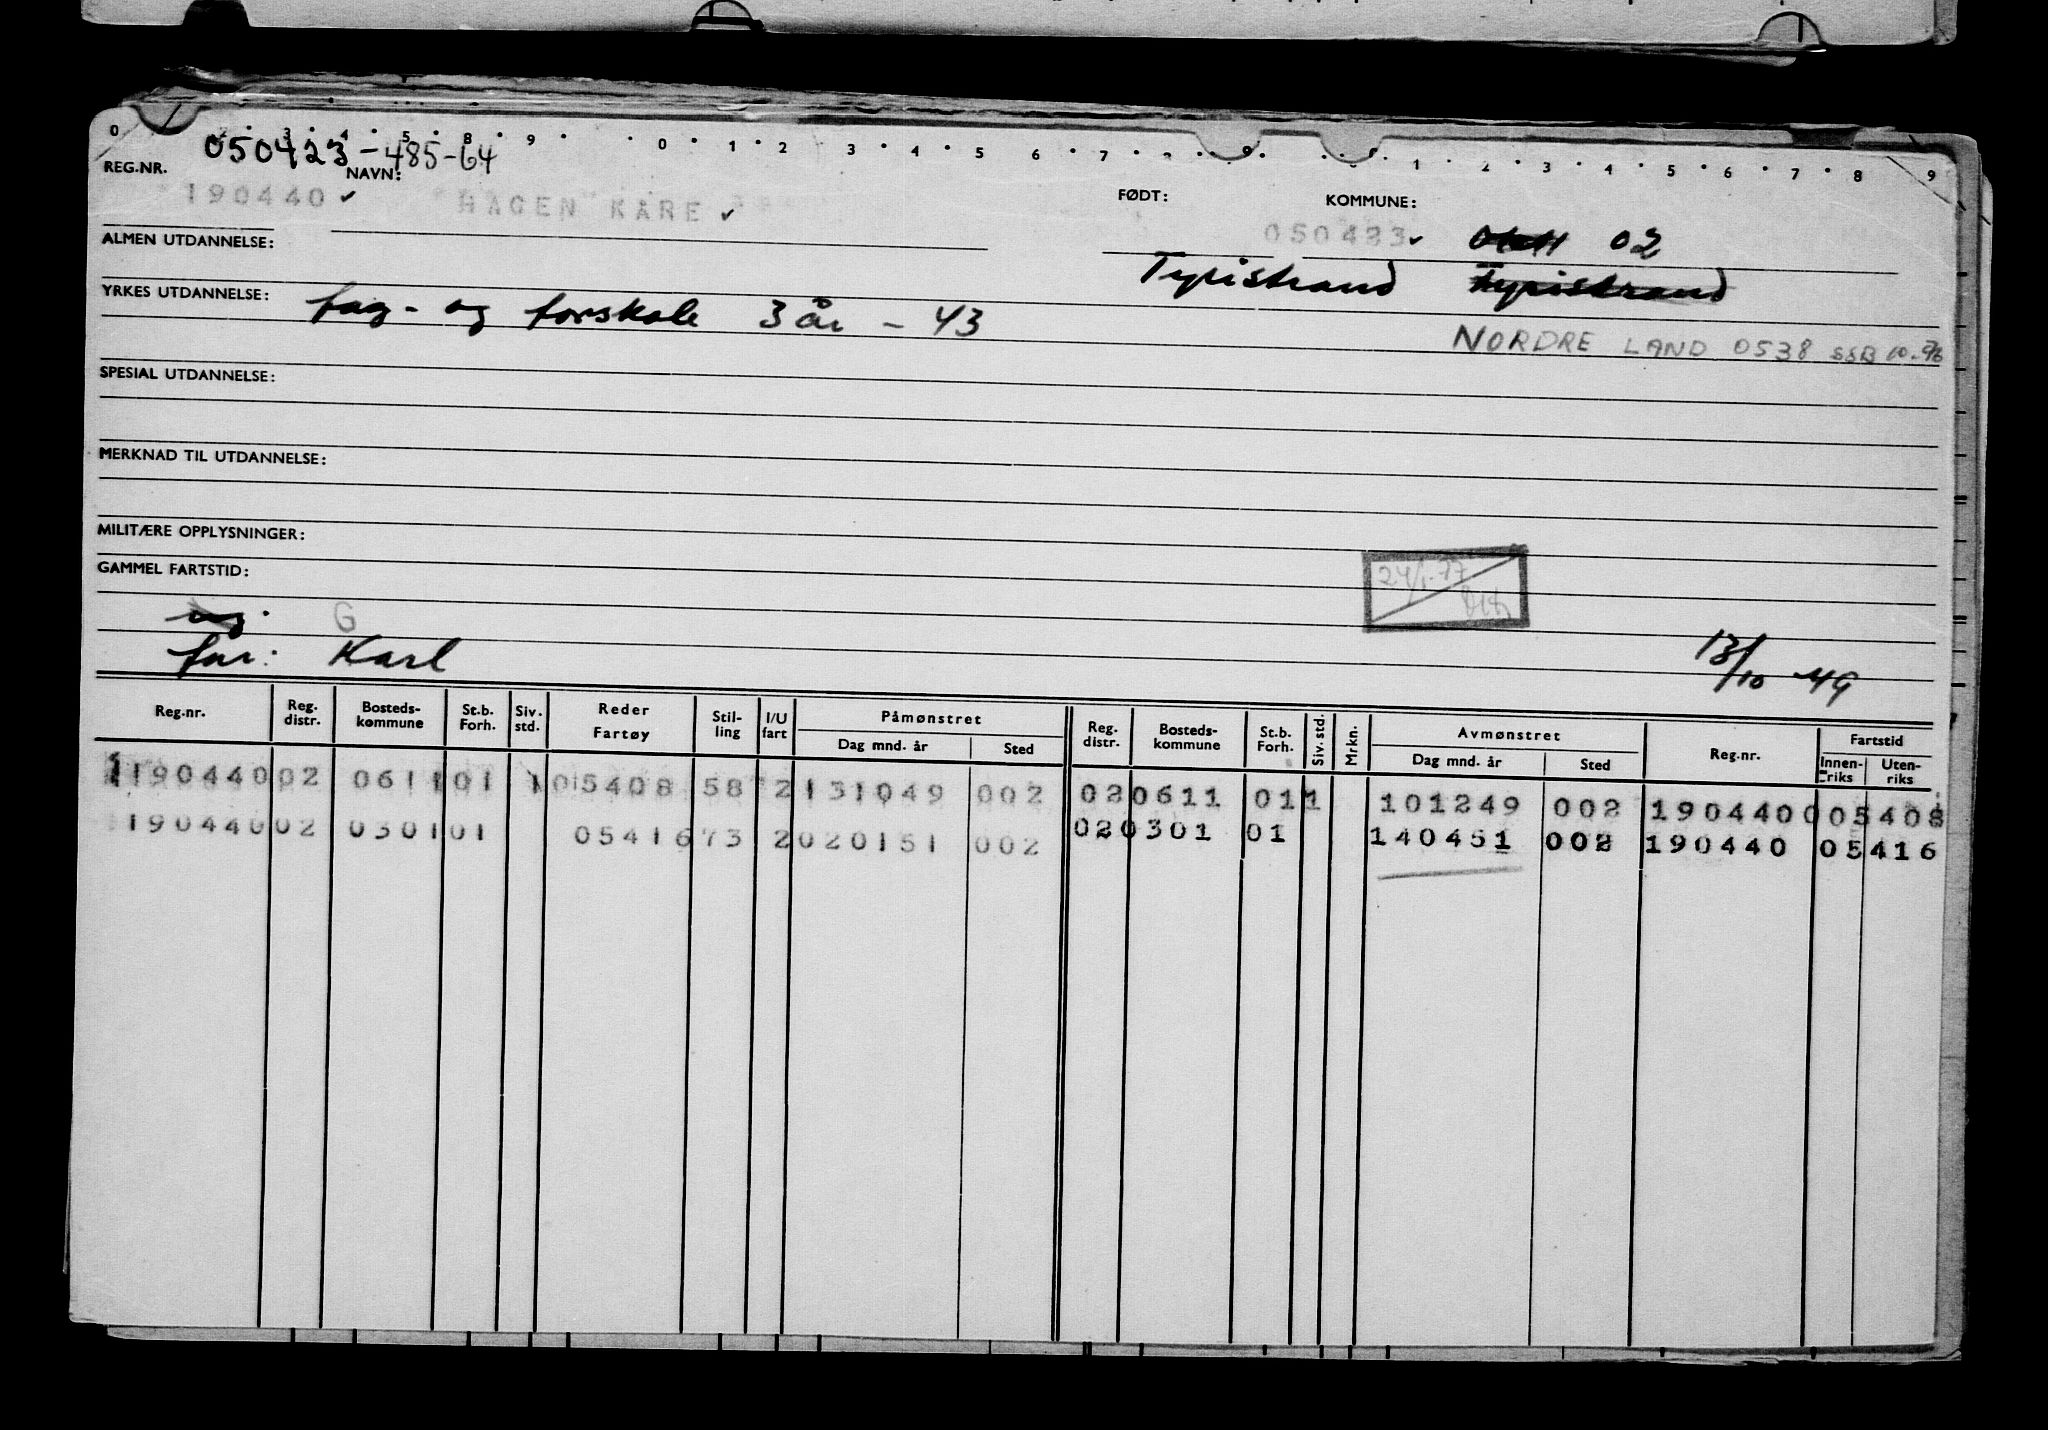 0 3 4 5 8 9 0 1 2 3 4 5 6 7 9 1 2 3 4 5 6 7 8 9
050423-485-64
REG.NR. NAVN: FØDT: KOMMUNE:
190440 ✓ HAGEN KARE ✓ 050423 ✓ 02
ALMEN UTDANNELSE: Tyristrand Tyristrand
YRKES UTDANNELSE: fag- og forskole 3 år - 43
NORDRE LAND 0538 SSB
SPESIAL UTDANNELSE:
MERKNAD TIL UTDANNELSE:
MILITÆRE OPPLYSNINGER:
GAMMEL FARTSTID:
24/1-77
ug. G
far: Karl 13/10 -49
Reg.nr. Reg. distr. Bosteds-kommune St.b. Forh. Siv. std. Reder Fartøy Stil-ling I/U fart Påmønstret Dag mnd. år Sted Reg. distr. Bosteds-kommune St.b. Forh. Siv. std. Mrkn. Avmønstret Dag mnd. år Sted Reg.nr. Fartstid Innen-riks Uten-riks
190440 02 0611 01 1 05408 58 2 131049 002 02 0611 01 1 101249 002 190440 0 05408
190440 02 0301 01 05416 73 2 020151 002 02 0301 01 140451 002 190440 05416